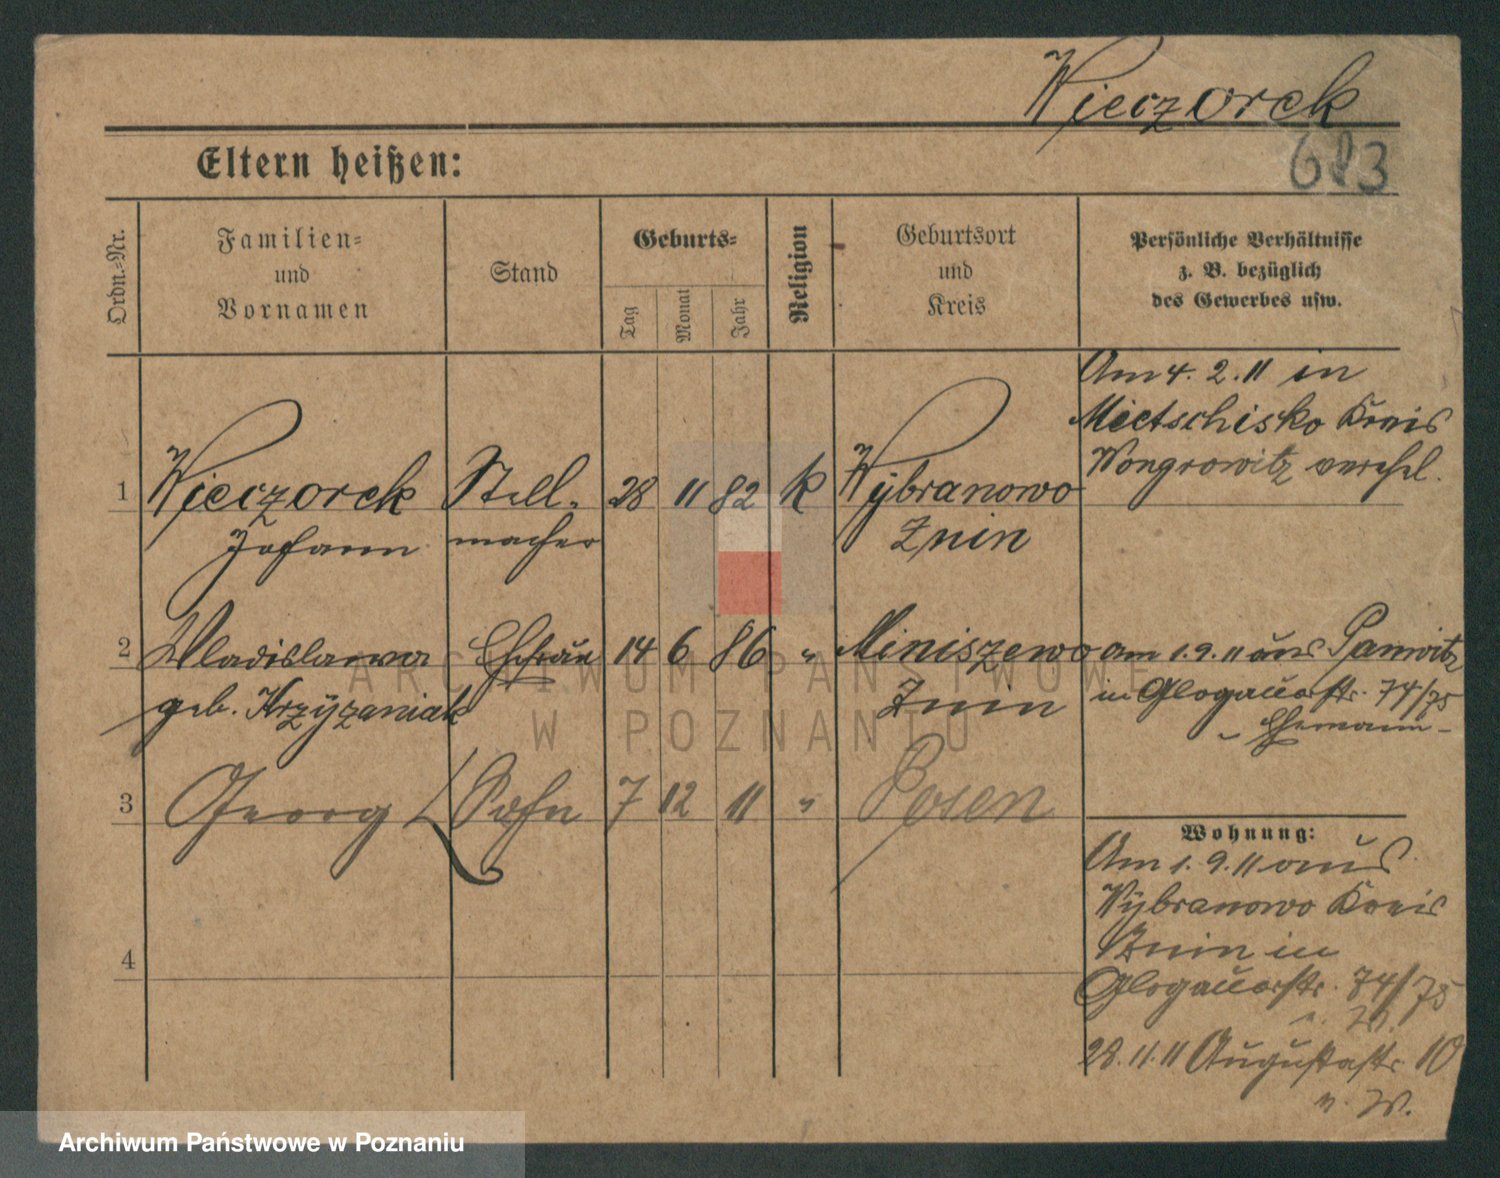 Wieczorek
Eltern heißen:
683
Ordn.-Nr.
Familien-
und
Vornamen
Stand
Geburts-
Tag
Monat
Jahr
Religion
Geburtsort
und
Kreis
Persönliche Verhältnisse
z. B. bezüglich
des Gewerbes usw.
Am 4. 2. 11 in
Mietschisko Kreis
Wongrowitz verehel.
1 Wieczorek Stell- 28 11 82 k Wybranowo
Johann macher Znin
2 Wladislawa Ehefrau 14 6 86 " Miniszewo am 1. 9. 11 aus
geb. Krzÿzaniak Znin in Glogauerstr. 74/75
- Ehemann -
3 Georg Sohn 7 12 11 " Posen
Wohnung:
Am 1. 9. 11 aus
Wÿbranowo Kreis
Znin in
Glogauerstr. 74/75
28. 11. 11 Augustastr. 10
4
ARCHIWUM PAŃSTWOWE
W POZNANIU
Archiwum Państwowe w Poznaniu